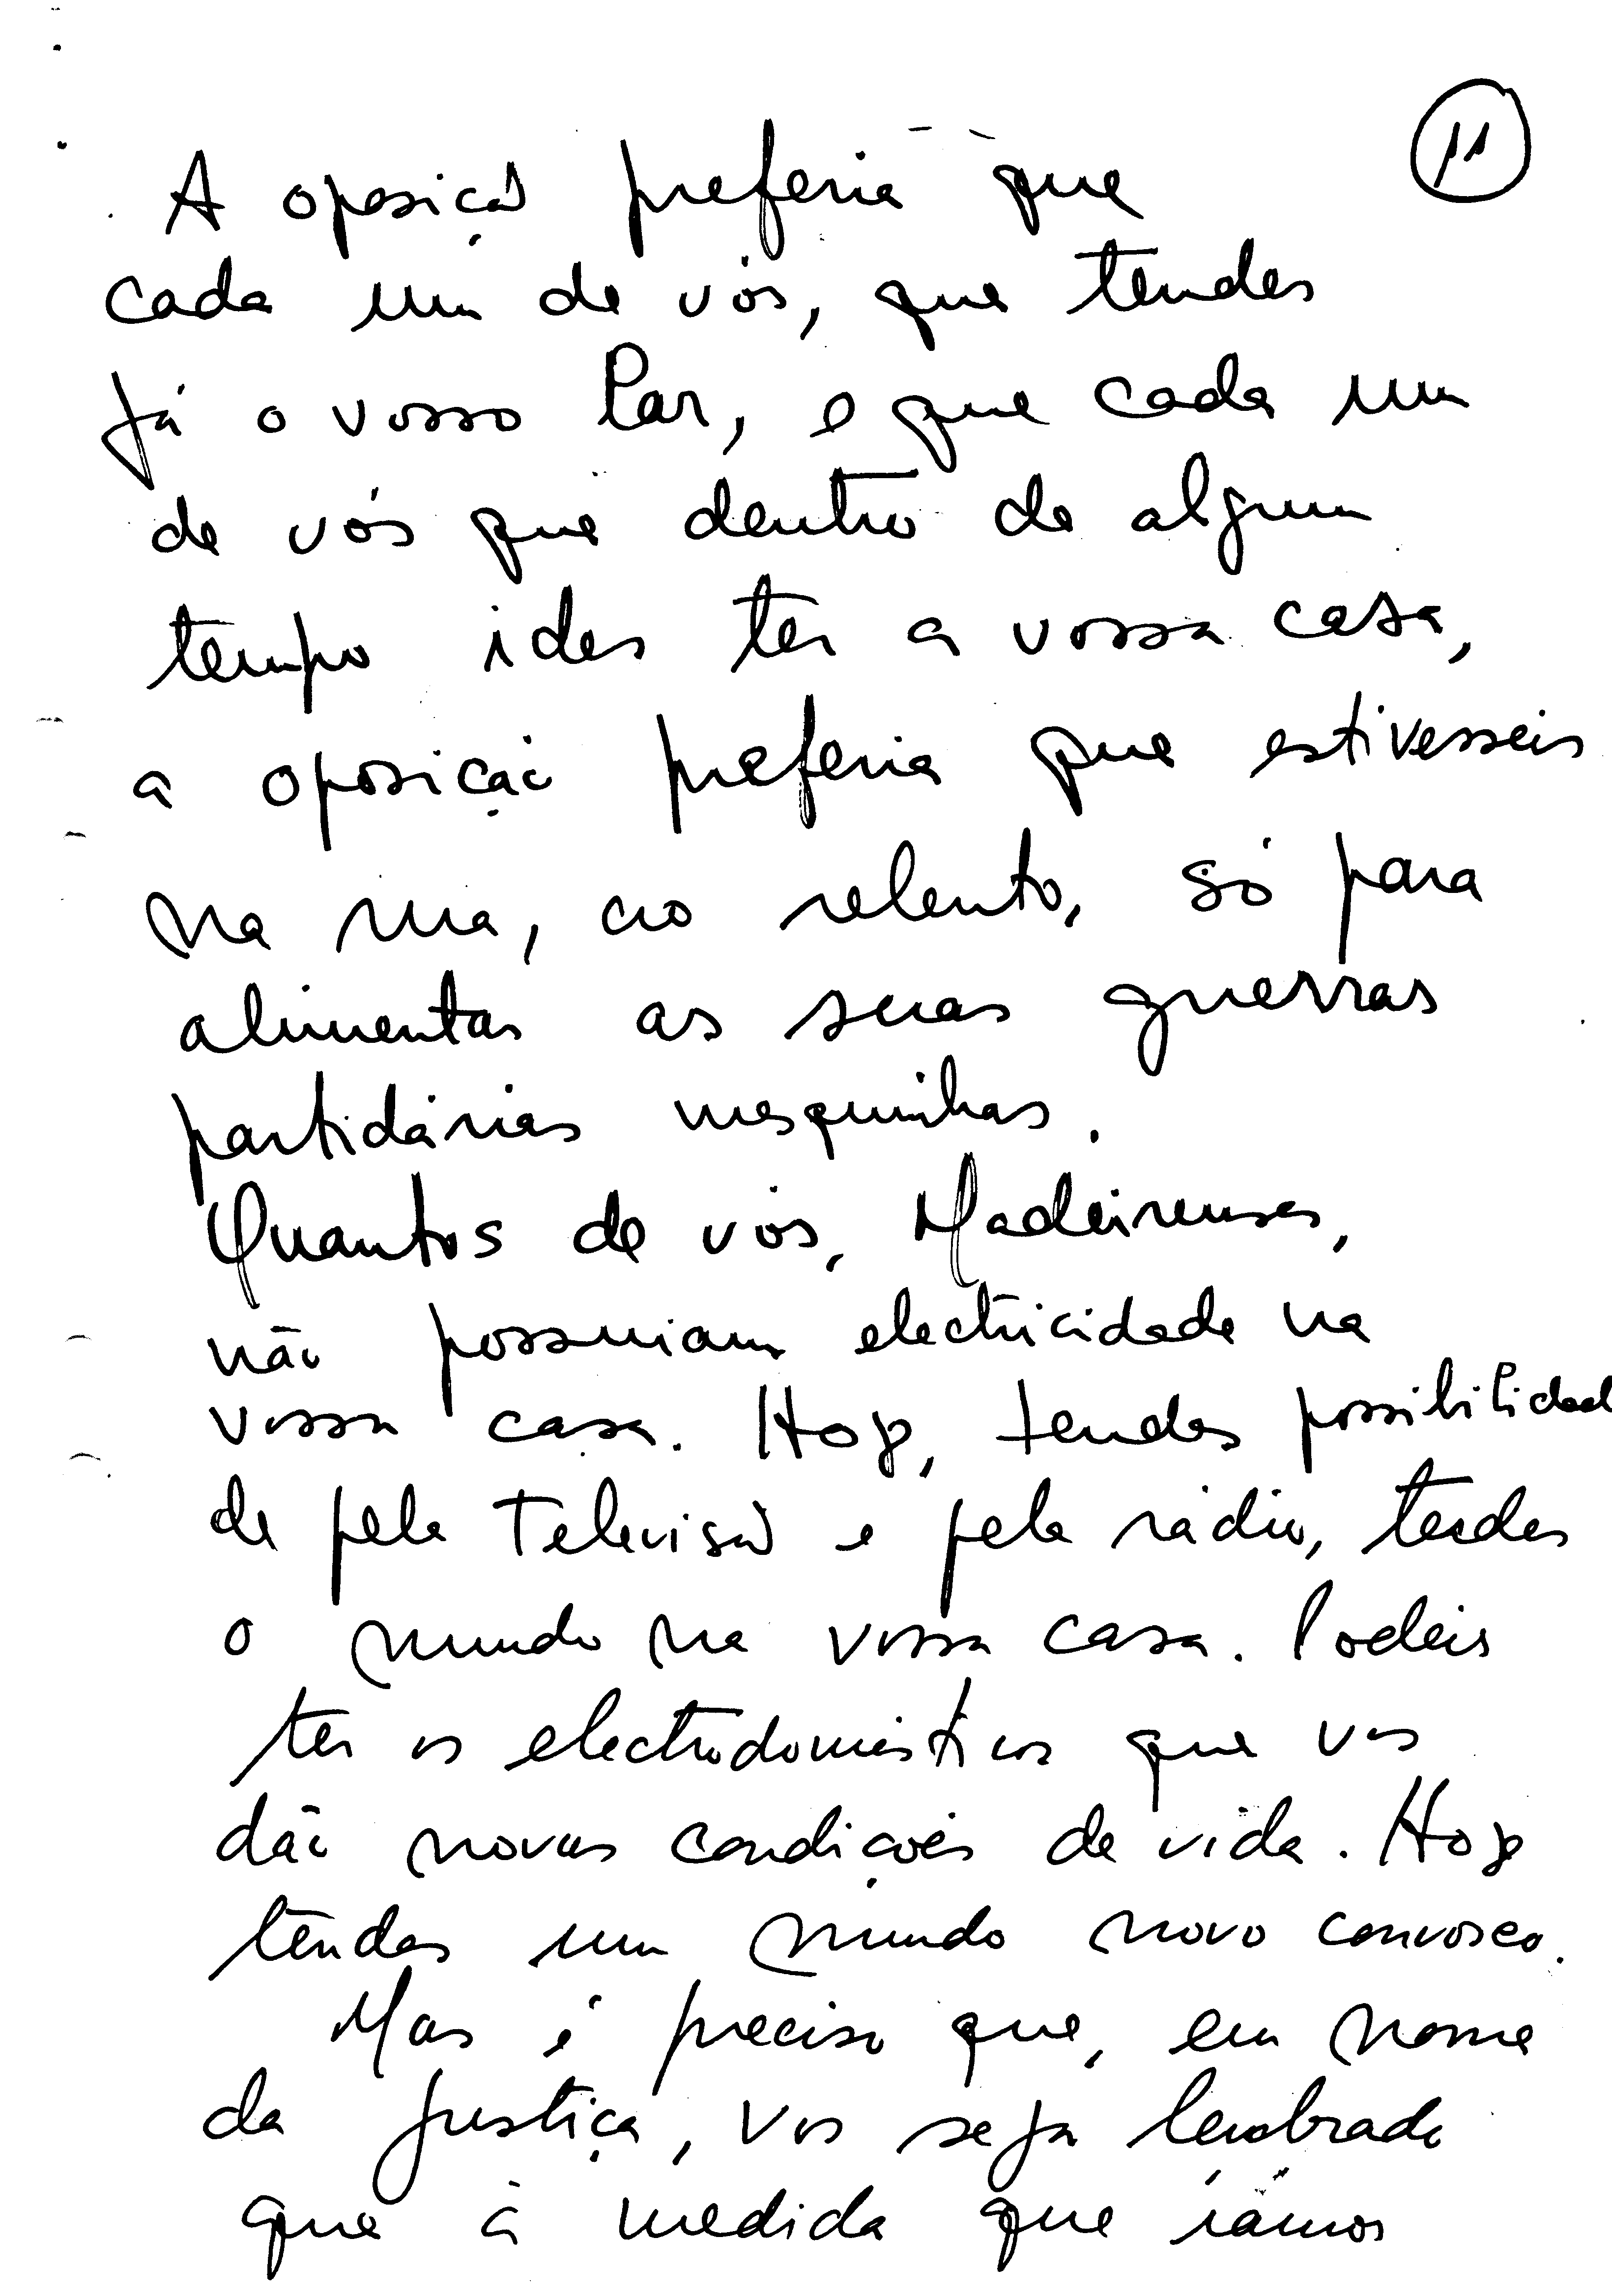 11
A oposição preferia que
cada um de vós, que tendes
já o vosso Lar, e que cada um
de vós que dentro de algum
tempo ides ter a vossa casa,
a oposição preferia que estivesseis
na rua, ao relento, só para
alimentar as suas guerras
partidárias mesquinhas.
Quantos de vós, Madeirenses,
não possuiam electricidade na
vossa casa. Hoje, tendes possibilidad
de pela Televisão e pela rádio, terdes
o mundo na vossa casa. Podeis
ter os electrodomésticos que vos
dão novas condições de vida. Hoje
tendes um mundo novo convosco.
Mas é preciso que, em nome
da justiça, vos seja lembrado
que à medida que íamos